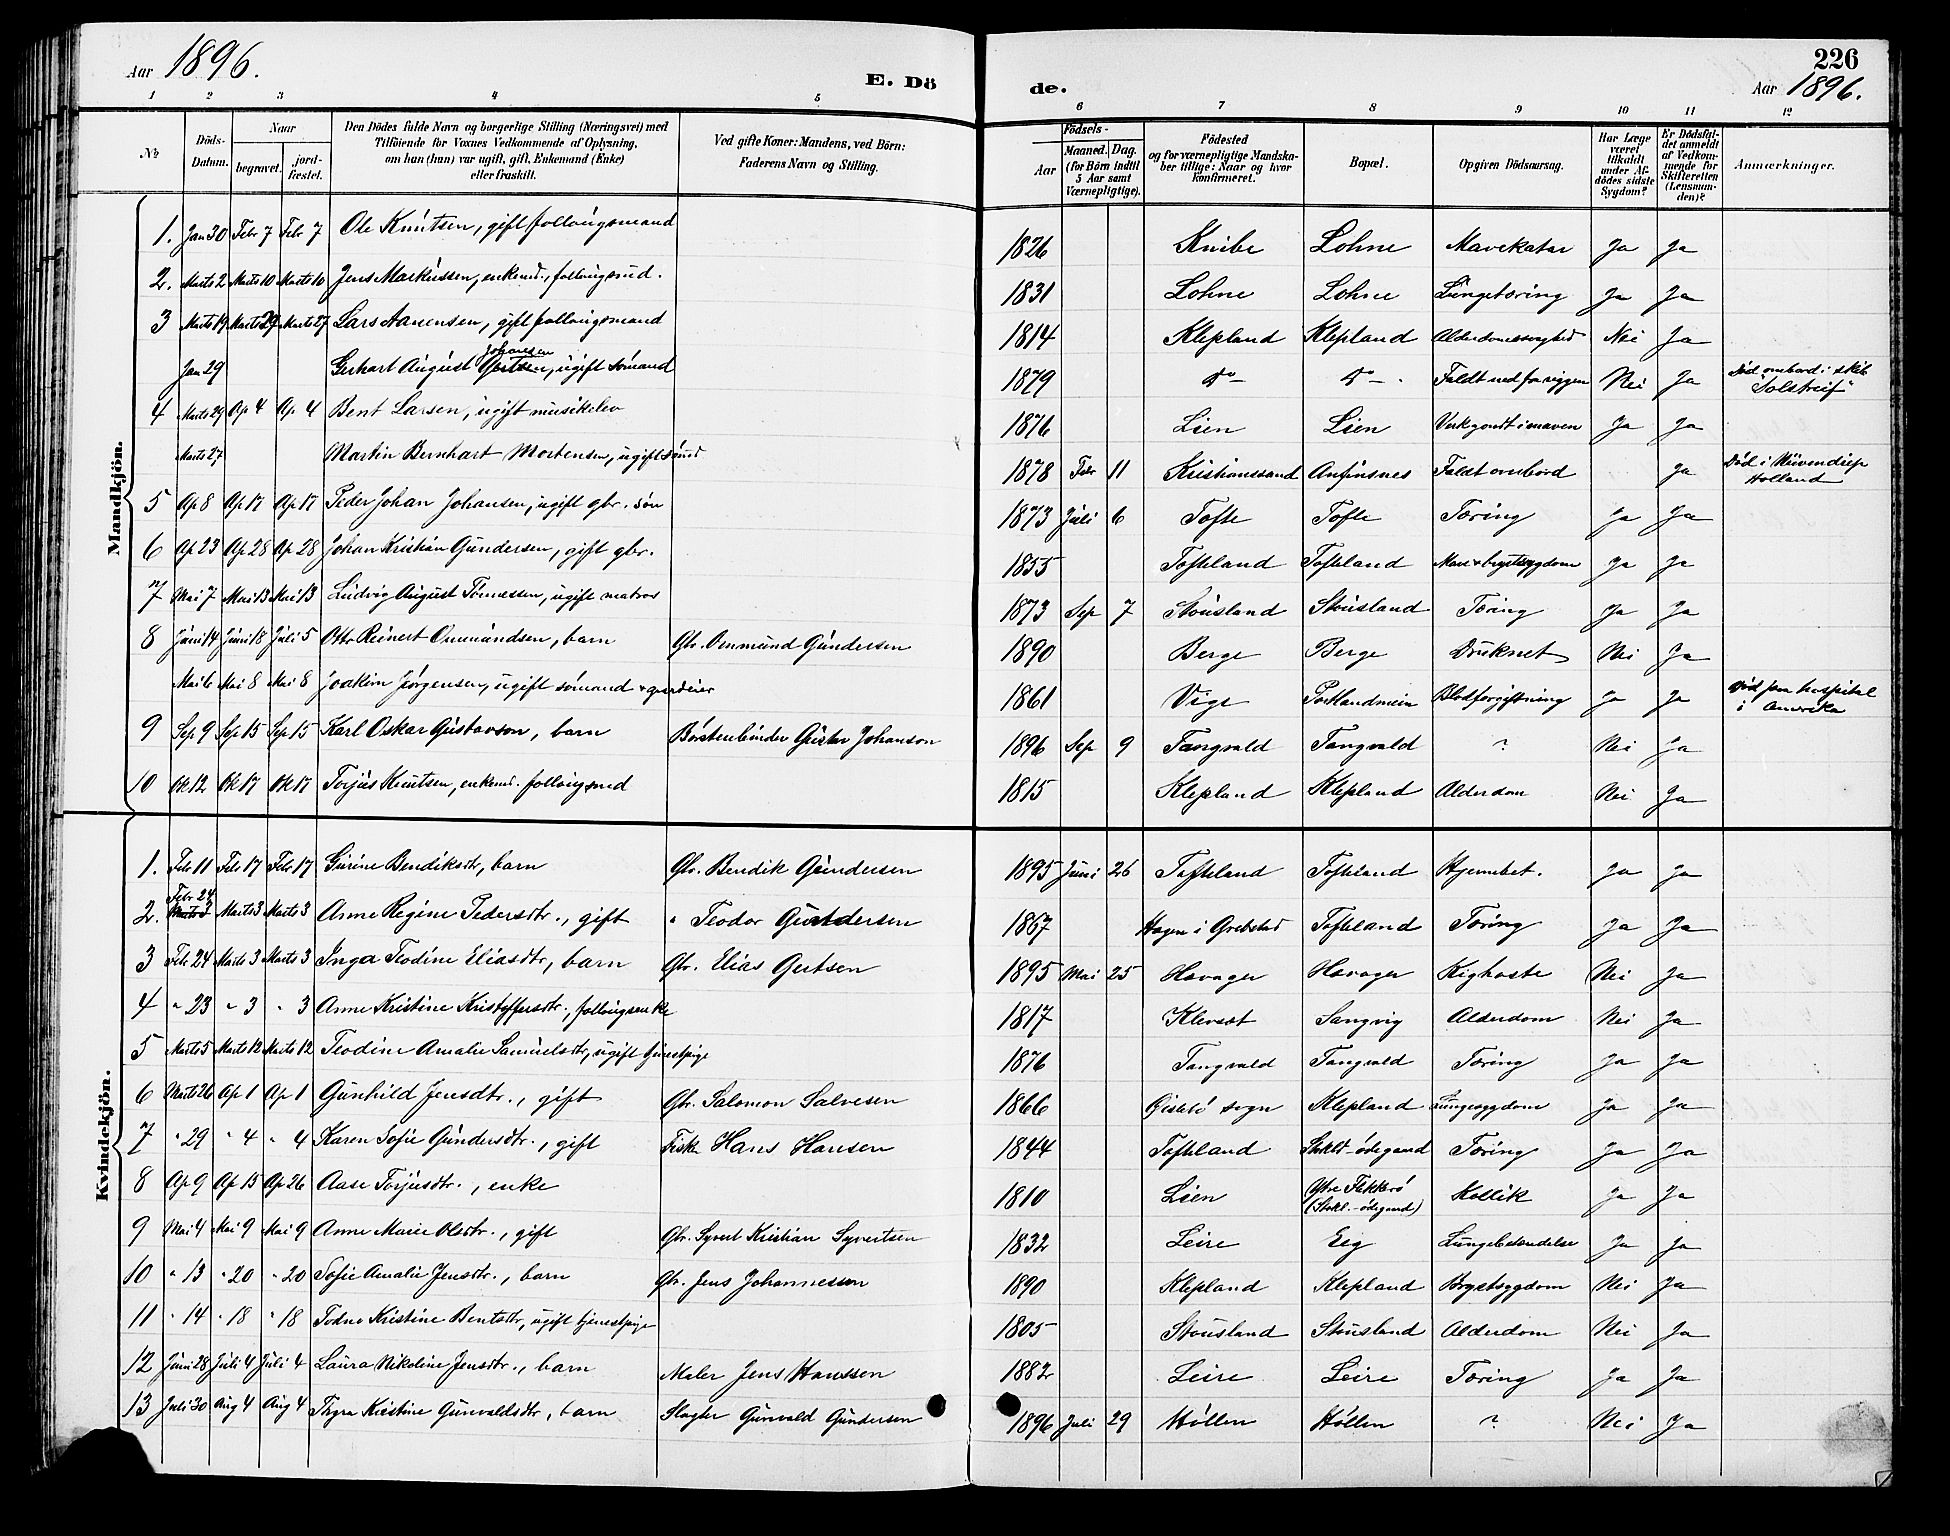 Aar 1896.
E. Döde.
226
Aar 1896.
1 2 3 4 5 6 7 8 9 10 11 12
No
Döds-Datum.
Naar begravet. jordfæstet.
Den Dödes fulde Navn og borgerlige Stilling (Næringsvei) med Tilföiende for Voxnes Vedkommende af Oplysning, om han (hun) var ugift, gift, Enkemand (Enke) eller fraskilt.
Ved gifte Koner: Mandens, ved Börn: Faderens Navn og Stilling.
Födsels- Aar Maaned. Dag. (for Börn indtil 5 Aar samt Værnepligtige).
Födested og for værnepligtige Mandskaber tillige: Naar og hvor konfirmeret.
Bopæl.
Opgiven Dödsaarsag.
Har Læge været tilkaldt under Afdödes sidste Sygdom?
Er Dödsfaldet anmeldt af Vedkommende for Skifteretten (Lensmanden)?
Anmærkninger.
Mandkjön.
1. Jan 30 Febr 7 Febr 7 Ole Knutsen, gift follougsmand 1826 Knibe Lohne Mavekatar Ja Ja
2. Marts 2 Marts 10 Marts 10 Jens Markussen, enkemd., follougsmd. 1831 Lohne Lohne Lungetæring Ja Ja
3 Marts 19 Marts 27 Marts 27 Lars Aanensen, gift follougsmand 1814 Klepland Klepland Alderdomssvaghed Nei Ja
Jan 29 Gerhart August Johnsen, ugift sömand 1879 do do Faldt ned fra riggen Nei Ja Död ombord i skib "Solstreif"
4 Marts 29 Ap 4 Ap 4 Bent Larsen, ugift musikelev 1876 Lien Lien Verk ondt i maven Ja Ja
Marts 27 Martin Bernhart Mortensen, ugift sömd 1878 Febr 11 Kristianssand Anfinsnes Faldt ombord Ja Död i Holland
5 Ap 8 Ap 17 Ap 17 Peder Johan Johansen, ugift gbr. sön 1873 Juli 6 Tofte Tofte Tæring Ja Ja
6 Ap 23 Ap 28 Ap 28 Johan Kristian Gundersen, gift gbr. 1855 Tofteland Tofteland Mave & brystsygdom Ja Ja
7 Mai 7 Mai 13 Mai 13 Ludvig August Tönnessen, ugift matros 1873 Sep 7 Stousland Stousland Tæring Ja Ja
8 Juni 14 Juni 18 Juli 5 Otto Reinert Ommundsen, barn Gbr. Ommund Gundersen 1890 Berge Berge Druknet Nei Ja
Mai 6 Mai 8 Mai 8 Joakim Jörgensen, ugift sömand & gaardeier 1861 Vige Blodforgiftning Ja Ja Död paa hospital i Amerika
9 Sep 9 Sep 15 Sep 15 Karl Oskar Gustavson, barn Börstenbinder Gustav Johanson 1896 Sep 9 Tangvald Tangvald ? Nei Ja
10 Ok 12 Ok 17 Ok 17 Torjus Knutsen, enkemd. follougsmd 1815 Klepland Klepland Alderdom Nei Ja
Kvindekjön.
1. Febr 11 Febr 17 Febr 17 Gurine Bendiksdtr, barn Gbr. Bendik Gundersen 1895 Juni 26 Tofteland Tofteland Hjernebet. Ja Ja
2. Febr 24 Marts 3 Marts 3 Anne Regine Pedersdtr., gift " Teodor Gundersen 1867 Hagen i Grebsted Tofteland Tæring Ja Ja
3 Febr 24 Marts 3 Marts 3 Inga Teodine Eliasdtr, barn Gbr. Elias Gertsen 1895 Mai 25 Havager Havager Kighoste Nei Ja
4 " 23 " 3 " 3 Anne Kristine Kristoffersdtr., follougsenke 1817 Klevset Langvig Alderdom Nei Ja
5 Marts 5 Marts 12 Marts 12 Teodine Amalie Samuelsdtr, ugift tjenestpige 1876 Tangvald Tangvald Tæring Ja Ja
6 Marts 26 Ap 1 Ap 1 Gunhild Jensdtr., gift Gbr. Salomon Salvesen 1866 sogn Klepland Lungesygdom Ja Ja
7 " 29 " 4 " 4 Karen Sofie Gundersdtr., gift Fisker Hans Hansen 1844 Toftland Stokl.-ödegaard Tæring Ja Ja
8 Ap 9 Ap 15 Ap 26 Aase Torjusdtr., enke 1810 Lien Ytre Flekkerö (Stokl.-ödegaard) Kollik Ja Ja
9 Mai 4 Mai 9 Mai 9 Anne Marie Olsdtr., gift Gbr. Syvert Kristian Syvertsen 1832 Leire Eeg Lungebetændelse Ja Ja
10 " 13 " 20 " 20 Sofie Amalie Jensdtr., barn Gbr. Jens Johannessen 1890 Klepland Klepland Brystsygdom Nei Ja
11 " 14 " 18 " 18 Todne Kristine Bentsdtr, ugift tjenestpige 1805 Stousland Stousland Alderdom Nei Ja
12 Juni 28 Juli 4 Juli 4 Laura Nikoline Jensdtr., barn Maler Jens Hanssen 1882 Leire Leire Tæring Ja Ja
13 Juli 30 Aug 4 Aug 4 Thyra Kristine Gunvaldsdtr, barn Slagter Gunvald Gundersen 1896 Juli 29 Höllen Höllen ? Nei Ja